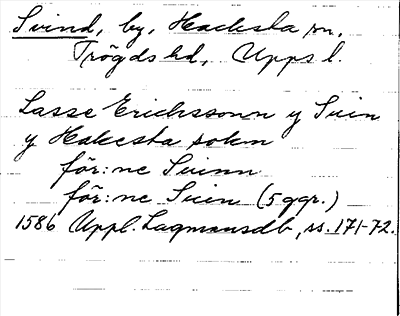 Svind, by, Hacksta sn,
Trögds hd, Upps l.
Lasse Erichssonn y Suin
y Hakesta sokn
för:ne Suinn
för:ne Suin (5 ggr.)
1586 Uppl. Lagmansdb, ss. 171-72.